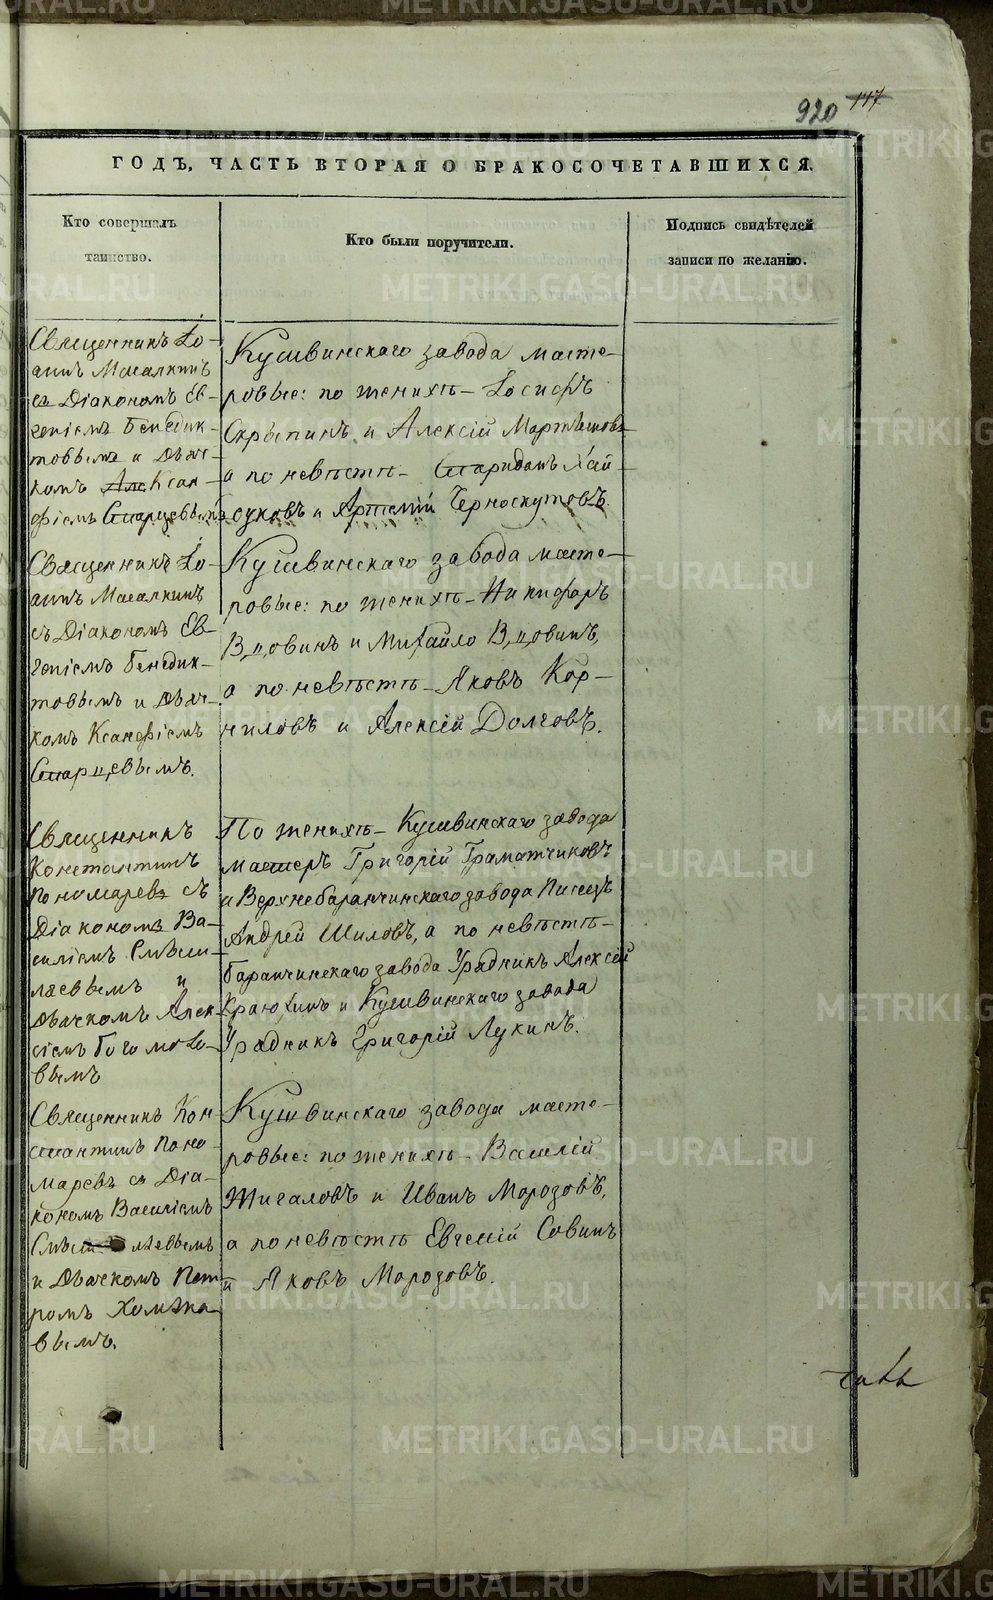 920 117
ГОДЪ, ЧАСТЬ ВТОРАЯ О БРАКОСОЧЕТАВШИХСЯ.
Кто совершалъ
таинство.
Кто были поручители.
Подпись свидѣтелей
записи по желанію.
Священникъ Іо-
аннъ Масалкинъ
съ Діакономъ Ев-
геніемъ Бенедик-
товымъ и Дьяч-
комъ Ксан-
фіемъ Старцевымъ
Кушвинскаго завода масте-
ровые: по женихѣ – Іосифъ
Скрыпинъ и Алексій Мартьшовъ
а по невѣстѣ – Спаридонъ Хай-
дуковъ и Артемій Черноскутовъ.
Священникъ Іо-
аннъ Масалкинъ
съ Діакономъ Ев-
геніемъ Бенедик-
товымъ и Дьяч-
комъ Ксанфіемъ
Старцевымъ.
Кушвинскаго завода масте-
ровые: по женихѣ – Никифоръ
Вдовинъ и Михайло Вдовинъ,
а по невѣстѣ – Яковъ Кор-
ниловъ и Алексій Долговъ.
Священникъ
Константинъ
Пономаревъ съ
Діакономъ Ва-
силіемъ Смыш-
ляевымъ и
Дьячкомъ Алек-
сіемъ Богомоло-
вымъ
По женихѣ – Кушвинскаго завода
мастеръ Григорій Граматчиковъ
и Верхнебаранчинскаго завода Писецъ
Андрей Шиловъ, а по невѣстѣ –
Баранчинскаго завода Урядникъ Алексій
Краюхинъ и Кушвинскаго завода
Урядникъ Григорій Лукинъ.
Священникъ Кон-
стантинъ Поно-
маревъ съ Діа-
кономъ Василіемъ
Смышляевымъ
и Дьячкомъ Пет-
ромъ Хомяко-
вымъ.
Кушвинскаго завода масте-
ровые: по женихѣ – Василій
Жигаловъ и Иванъ Морозовъ,
а по невѣстѣ Евгеній Савинъ
и Яковъ Морозовъ.
METRIKI.GASO-URAL.RU